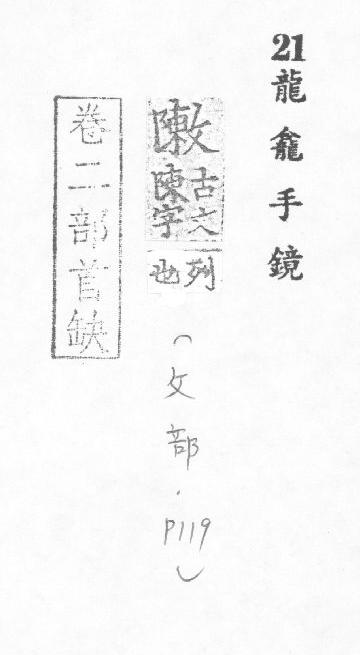 21龍龕手鏡
敶
古文
陳字
列
也
(攵部.P119)
卷二部首缺